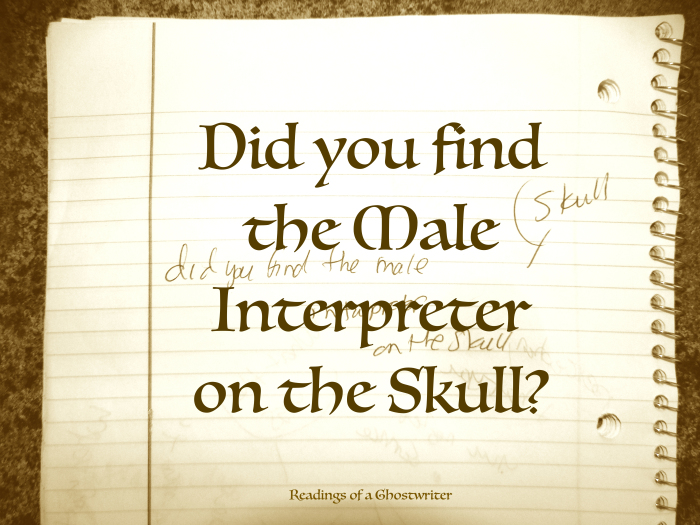 Did you find
the Male
(Skull
did you find the male
Interpreter
on the Skull
on the Skull?
Readings of a Ghostwriter